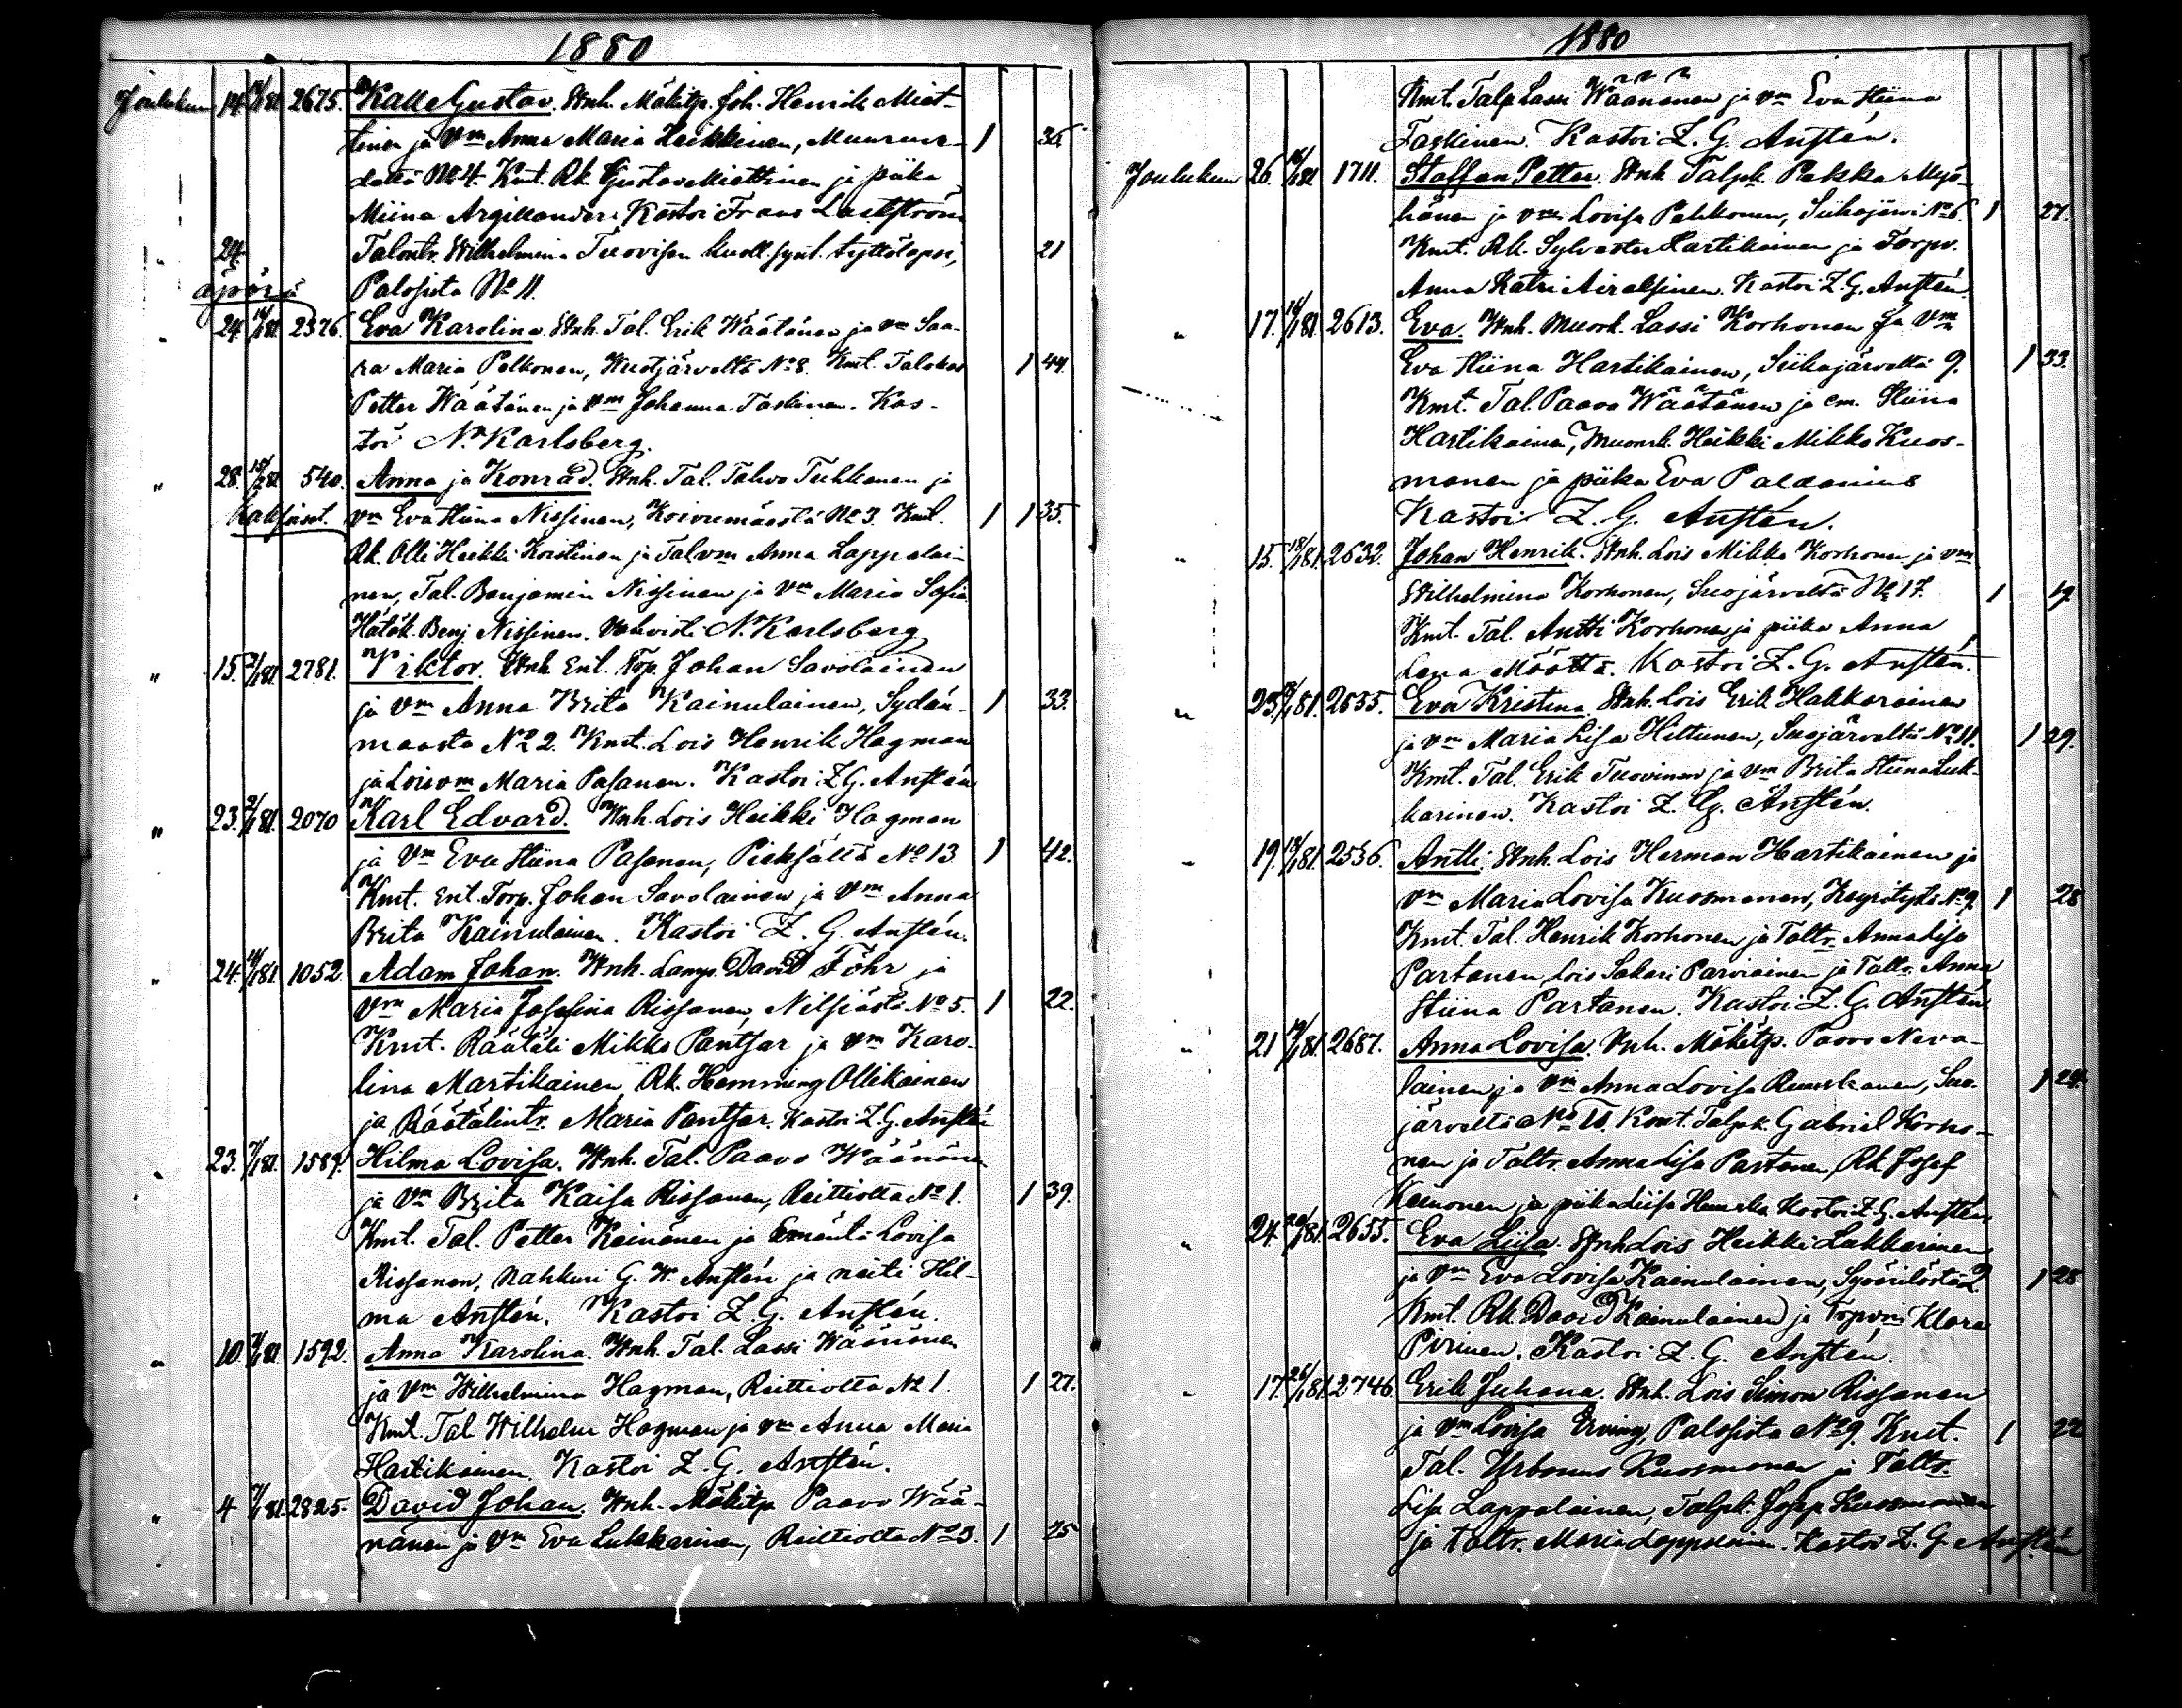 1880
Joulukuu 14. 2675. Kalle Gustav. Wnh. Mökitp. Joh. Henrik Miet-
tinen ja Vm Anna Maria Heikkinen, Muuruve- 1 36.
deltä No 4. Kmt. Rk. Gustav Miettinen ja piika
Miina Argillander. Kastoi Frans Lackström
" 24. Talontr. Wilhelmina Tuovisen kuoll. synt. tyttölapsi, 21
äpärä Palosista No 11.
" 24. 14/1 81. 2376. Eva Karolina. Wnh. Tal. Erik Wäätänen ja vm Saa-
ra Maria Pelkonen, No 8. Kmt. 1 44.
Petter Wäätänen ja Vm Johanna Taskinen. Kas-
toi N. Karlsberg.
" 28. 540. Anna ja Konrad. Wnh. Tal. Tahvo Tuhkanen ja
Kaksiset. Vm Eva Stiina Nissinen, Koivumäestä No 3. Kmt. 1 1 35.
Rk. Olli Heikki Koistinen ja Tal.vm Anna Lappalai-
nen, Tal. Benjamin Nissinen ja Vm Maria Sofia.
Hätäk. Benj. Nissinen. Vahvisti N. Karlsberg
" 15. 2/1 81. 2781. Viktor. Wnh. Ent. Torp. Johan Savolainen
ja Vm Anna Brita Kainulainen, Sydän- 1 33.
maasta No 2. Kmt. Lois Henrik Hagman
ja Loisvm Maria Pasanen. Kastoi Z. G. Anstén
" 23. 2/1 81. 2070 Karl Edvard. Wnh. Lois Heikki Hagman
ja Vm Eva Stiina Pasonen, Pieksältä No 13 1 42.
Kmt. Ent. Torp. Johan Savolainen ja Vm Anna
Brita Kainulainen. Kastoi Z. G. Ansten.
" 24. 1052 Adam Johan. Wnh. Lamps. David Föhr ja
Vm Maria Josefina Rissanen, Nilsiästä No 5. 1 22.
Kmt. Räätäli Mikko Pantsar ja Vm Karo-
lina Martikainen, Rk. Hemming Ollikainen
ja Räätälintr. Maria Pantsar. Kastoi Z. G. Ansten
" 23. 7/1 81. 1589. Hilma Lovisa. Wnh. Tal. Paavo Wäänänen
ja Vm Brita Kaisa Rissanen, Reittiolta No 1. 1 39.
Kmt. Tal. Petter Keinänen ja Emäntä Lovisa
Rissanen, Nahkuri G. W. Anstén ja neiti Hil-
ma Anstén. Kastoi Z. G. Anstén.
" 10. 7/1 81. 1592. Anna Karolina. Wnh. Tal. Lassi Wäänänen
ja Vm Wilhelmina Hagman, Reittiolta No 1. 1 27.
Kmt. Tal. Wilhelm Hagman ja Vm Anna Maria
Hartikainen. Kastoi Z. G. Anstén.
" 4 7/1 81. 2825. David Johan. Wnh. Mökitp. Paavo Wää-
nänen ja Vm Eva Lukkarinen, Reittiolta No 3. 1 25
1880
Kmt. Talp. Lassi Wäänänen ja Vm Eva Stiina
Taskinen. Kastoi Z. G. Anstén.
Joulukuu 26. 1711. Staffan Petter. Wnh. Talpk. Pekka Myö-
hänen ja vm Lovisa Pehkonen, Siikajärvi No 6. 1 27.
Kmt. Rk. Sylvester Hartikainen ja Torpv.
Anna Katri Airaksinen. Kastoi Z. G. Anstén.
" 17. 2613. Eva. Wnh. Muonk. Lassi Korhonen ja Vm
Eva Stiina Hartikainen, Siikajärveltä 9. 1 33.
Kmt. Tal. Paavo Wäätänen ja em. Stiina
Hartikainen, Muonrk. Heikki Mikko Kuos-
manen ja piika Eva Paldanius
Kastoi Z. G. Anstén.
" 15. 18/1 81. 2632. Johan Henrik. Wnh. Lois Mikko Korhonen ja Vm
Wilhelmina Korhonen, Suojärveltä No 17. 1 19.
Kmt. Tal. Antti Korhonen ja piika Anna
Lena Määttä. Kastoi Z. G. Anstén.
" 25. 2635. Eva Kristina. Wnh. Lois Erik Hakkarainen
ja Vm Maria Lisa Hiltunen, Suojärveltä No 11. 1 29.
Kmt. Tal. Erik Tuovinen ja Vm Brita Stiina Luk-
karinen. Kastoi Z. G. Anstén.
" 19. 2536. Antti. Wnh. Lois Herman Hartikainen ja
Vm Maria Lovisa Kuosmanen, Keyritystä No 9. 1 28
Kmt. Tal. Henrik Korhonen ja Taltr. Anna Lisa
Partanen, Lois Sakari Parviainen ja Taltr. Anna
Stiina Partanen. Kastoi Z. G. Anstén
" 21 2687. Anna Lovisa. Wnh. Mökitp. Paavo Neva-
lainen ja Vm Anna Lovisa Ruuskanen, Suo- 1 24.
järveltä No 10. Kmt. Talpk. Gabriel Korho-
nen ja Taltr. Anna Lisa Partanen, Rk. Josef
Keinonen ja piika Liisa Kastoi Z. G. Anstén
" 24. 2655. Eva Liisa. Wnh. Lois Heikki Lukkarinen
ja Vm Eva Lovisa Kainulainen, 2. 1 28
Kmt. Rk. David Kainulainen ja Torpvm Klara
Pirinen. Kastoi Z. G. Anstén.
" 17. 2746. Erik Juhana. Wnh. Lois Simon Rissanen
ja Vm Lovisa Erving, Palosista No 9. Kmt. 1 22
Tal. Urbanus Kuosmanen ja Taltr.
Lisa Lappalainen, Talpk. Josep Kuosmanen
ja Taltr. Maria Lappalainen. Kastoi Z. G. Anstén